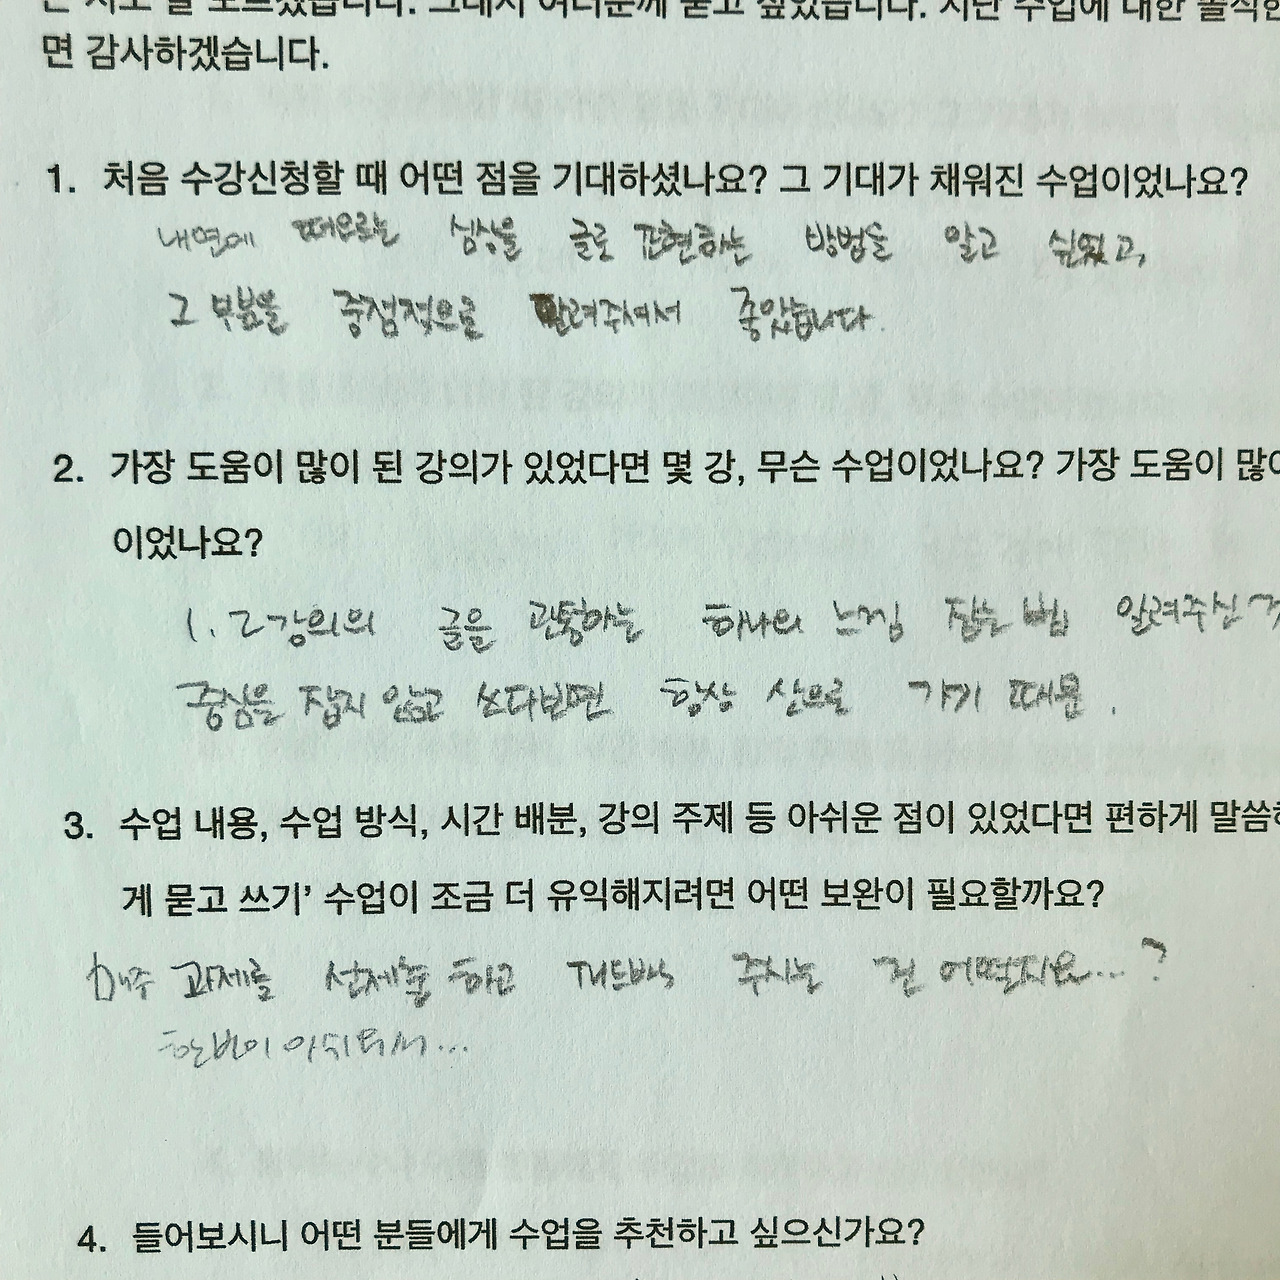 은 저도 잘 모르겠습니다. 그래서 여러분께 묻고 싶었습니다. 지난 수업에 대한 솔직한
면 감사하겠습니다.
1. 처음 수강신청할 때 어떤 점을 기대하셨나요? 그 기대가 채워진 수업이었나요?
내면에 떠오르는 심상을 글로 표현하는 방법을 알고 싶었고,
그 부분을 중점적으로 알려주셔서 좋았습니다.
2. 가장 도움이 많이 된 강의가 있었다면 몇 강, 무슨 수업이었나요? 가장 도움이 많이
이었나요?
1. 2강의의 글을 관통하는 하나의 느낌 잡는 법 알려주신
중심을 잡지 않고 쓰다보면 항상 산으로 가기 때문.
3. 수업 내용, 수업 방식, 시간 배분, 강의 주제 등 아쉬운 점이 있었다면 편하게 말씀해
게 묻고 쓰기’ 수업이 조금 더 유익해지려면 어떤 보완이 필요할까요?
매주 과제를 선제출 하고 피드백 주시는 건 어떨지요...?
한번이 아쉬워서...
4. 들어보시니 어떤 분들에게 수업을 추천하고 싶으신가요?